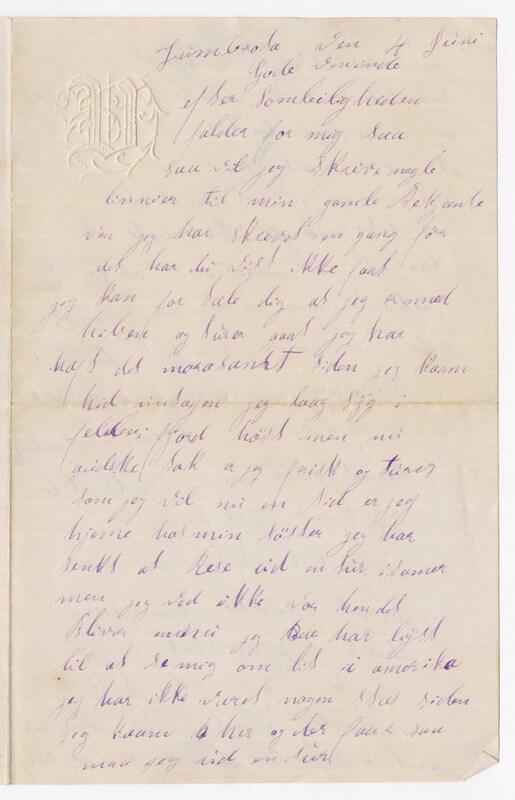 Jumbroda den 4 Juni
Gode Veninde
efter som leiligheden
falder for mig saa
saa vil jeg skrive nogle
linnier til min gamle Bekjente
ven jeg har skrevet en gang før
det har du vist ikke faat
jeg kan for tæle dig at jeg er med
helsen og turer gaat jeg har
haft det morosamt siden jeg kaam
hid untagen jeg laag syg i
feber i fjord høst men nu
gudske tak er jeg frisk og turer
som jeg vil nu en tid er jeg
hjeme hos min søster jeg har
tenkt at Rese ud en tur i somer
men jeg ved ikke vor hen det
Bliver enu jeg har lyst
til at se mig om lit i amerika
jeg har ikke været nogen sted siden
jeg kaam her og der faar saa
maa jeg ud en tur